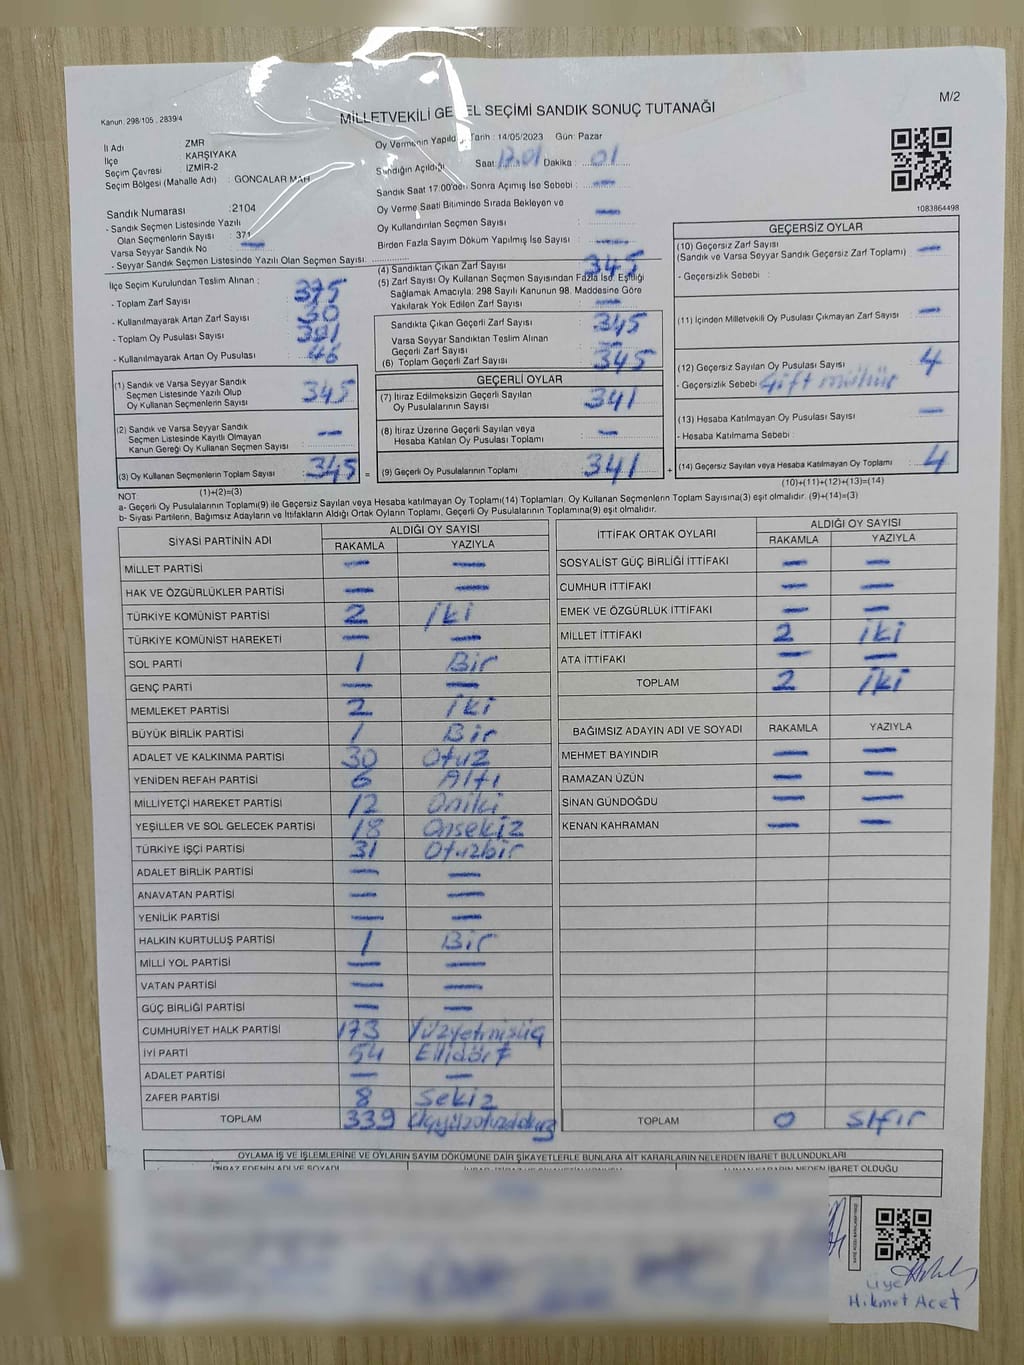 M/2
MİLLETVEKİLİ SEÇİMİ SANDIK SONUÇ TUTANAĞI
Kanun: 298/105 , 2839/4
İl Adı ZMR
İlçe KARŞIYAKA
Seçim Çevresi : İZMİR-2
Seçim Bölgesi (Mahalle Adı) : GONCALAR MAH
Oy Vermenin Yapıldığı Tarih : 14/05/2023 Gün: Pazar
Sandığın Açıldığı Saat Dakika : 01
Sandık Saat 17.00'den Sonra Açılmış İse Sebebi : —
Oy Verme Saati Bitiminde Sırada Bekleyen ve
Oy Kullandırılan Seçmen Sayısı —
Birden Fazla Sayım Döküm Yapılmış İse Sayısı —
1083864498
Sandık Numarası :2104
- Sandık Seçmen Listesinde Yazılı
Olan Seçmenlerin Sayısı : 371
Varsa Seyyar Sandık No —
- Seyyar Sandık Seçmen Listesinde Yazılı Olan Seçmen Sayısı:
İlçe Seçim Kurulundan Teslim Alınan :
- Toplam Zarf Sayısı 375
- Kullanılmayarak Artan Zarf Sayısı 30
- Toplam Oy Pusulası Sayısı
- Kullanılmayarak Artan Oy Pusulası 46
(1) Sandık ve Varsa Seyyar Sandık
Seçmen Listesinde Yazılı Olup
Oy Kullanan Seçmenlerin Sayısı 345
(2) Sandık ve Varsa Seyyar Sandık
Seçmen Listesinde Kayıtlı Olmayan
Kanun Gereği Oy Kullanan Seçmen Sayısı —
(3) Oy Kullanan Seçmenlerin Toplam Sayısı 345 =
(1)+(2)=(3)
(4) Sandıktan Çıkan Zarf Sayısı 345
(5) Zarf Sayısı Oy Kullanan Seçmen Sayısından Fazla İse, Eşitliği
Sağlamak Amacıyla: 298 Sayılı Kanunun 98. Maddesine Göre
Yakılarak Yok Edilen Zarf Sayısı —
Sandıkta Çıkan Geçerli Zarf Sayısı 345
Varsa Seyyar Sandıktan Teslim Alınan
Geçerli Zarf Sayısı —
(6) Toplam Geçerli Zarf Sayısı 345
GEÇERLİ OYLAR
(7) İtiraz Edilmeksizin Geçerli Sayılan
Oy Pusulalarının Sayısı 341
(8) İtiraz Üzerine Geçerli Sayılan veya
Hesaba Katılan Oy Pusulası Toplamı —
(9) Geçerli Oy Pusulalarının Toplamı 341 +
GEÇERSİZ OYLAR
(10) Geçersiz Zarf Sayısı
(Sandık ve Varsa Seyyar Sandık Geçersiz Zarf Toplamı) —
- Geçersizlik Sebebi :
(11) İçinden Milletvekili Oy Pusulası Çıkmayan Zarf Sayısı —
(12) Geçersiz Sayılan Oy Pusulası Sayısı 4
- Geçersizlik Sebebi Çift mühür
(13) Hesaba Katılmayan Oy Pusulası Sayısı —
- Hesaba Katılmama Sebebi :
(14) Geçersiz Sayılan veya Hesaba Katılmayan Oy Toplamı 4
(10)+(11)+(12)+(13)=(14)
NOT
a- Geçerli Oy Pusulalarının Toplamı(9) ile Geçersiz Sayılan veya Hesaba katılmayan Oy Toplamı(14) Toplamları, Oy Kullanan Seçmenlerin Toplam Sayısına(3) eşit olmalıdır. (9)+(14)=(3)
b- Siyasi Partilerin, Bağımsız Adayların ve İttifakların Aldığı Ortak Oyların Toplamı, Geçerli Oy Pusulalarının Toplamına(9) eşit olmalıdır.
SİYASİ PARTİNİN ADI ALDIĞI OY SAYISI
RAKAMLA YAZIYLA
MİLLET PARTİSİ — —
HAK VE ÖZGÜRLÜKLER PARTİSİ — —
TÜRKİYE KOMÜNİST PARTİSİ 2 İki
TÜRKİYE KOMÜNİST HAREKETİ — —
SOL PARTİ 1 Bir
GENÇ PARTİ — —
MEMLEKET PARTİSİ 2 İki
BÜYÜK BİRLİK PARTİSİ 1 Bir
ADALET VE KALKINMA PARTİSİ 30 Otuz
YENİDEN REFAH PARTİSİ 6 Altı
MİLLİYETÇİ HAREKET PARTİSİ 12 Oniki
YEŞİLLER VE SOL GELECEK PARTİSİ 18 Onsekiz
TÜRKİYE İŞÇİ PARTİSİ 31 Otuzbir
ADALET BİRLİK PARTİSİ — —
ANAVATAN PARTİSİ — —
YENİLİK PARTİSİ — —
HALKIN KURTULUŞ PARTİSİ 1 Bir
MİLLİ YOL PARTİSİ — —
VATAN PARTİSİ — —
GÜÇ BİRLİĞİ PARTİSİ — —
CUMHURİYET HALK PARTİSİ 173 Yüzyetmişüç
İYİ PARTİ 54 Ellidört
ADALET PARTİSİ — —
ZAFER PARTİSİ 8 Sekiz
TOPLAM 339 Üçyüzotuzdokuz
İTTİFAK ORTAK OYLARI ALDIĞI OY SAYISI
RAKAMLA YAZIYLA
SOSYALİST GÜÇ BİRLİĞİ İTTİFAKI — —
CUMHUR İTTİFAKI — —
EMEK VE ÖZGÜRLÜK İTTİFAKI — —
MİLLET İTTİFAKI 2 İki
ATA İTTİFAKI — —
TOPLAM 2 İki
BAĞIMSIZ ADAYIN ADI VE SOYADI RAKAMLA YAZIYLA
MEHMET BAYINDIR — —
RAMAZAN ÜZÜN — —
SİNAN GÜNDOĞDU — —
KENAN KAHRAMAN — —
TOPLAM 0 Sıfır
OYLAMA İŞ VE İŞLEMLERİNE VE OYLARIN SAYIM DÖKÜMÜNE DAİR ŞİKAYETLERLE BUNLARA AİT KARARLARIN NELERDEN İBARET BULUNDUKLARI
İTİRAZ EDENİN ADI VE SOYADI
ALINAN KARARIN NEDEN İBARET OLDUĞU
Üye
Hikmet Acet